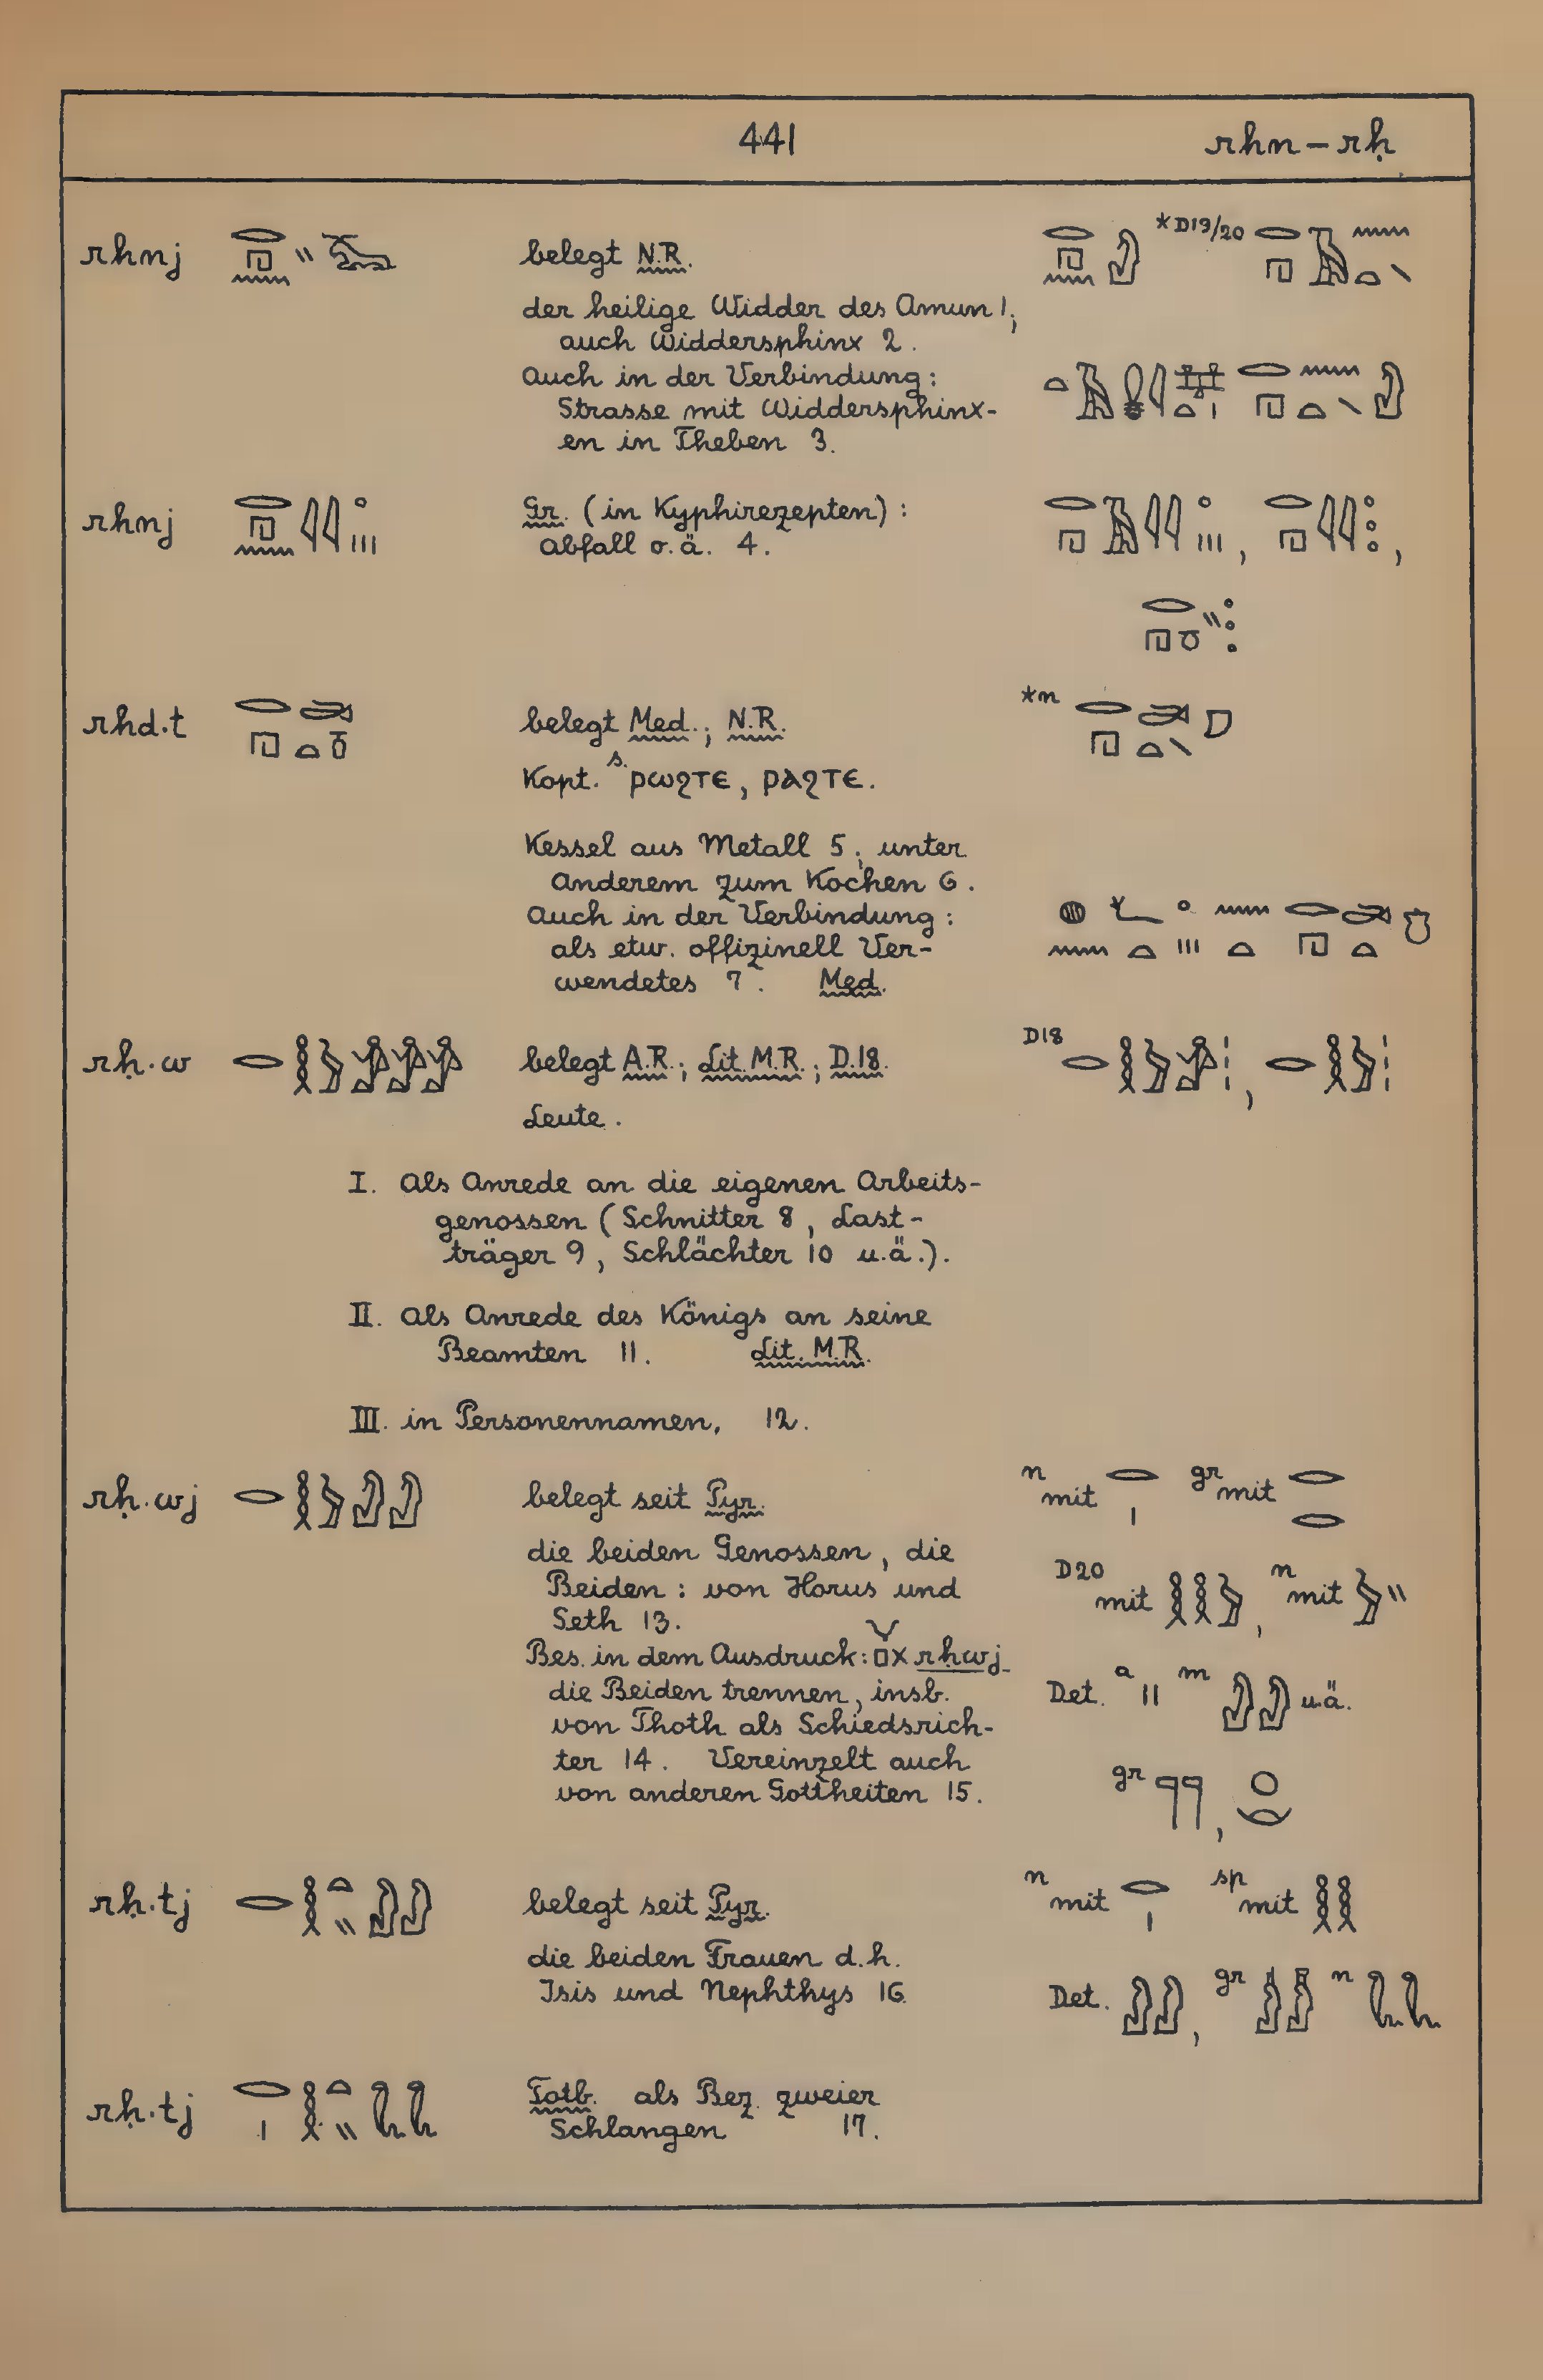 441
rhn – rḥ
rhnj
belegt N.R.
*D19/20
der heilige Widder des Amun 1;
auch Widdersphinx 2.
Auch in der Verbindung:
Strasse mit Widdersphinx-
en in Theben 3.
rhnj
Gr. (in Kyphirezepten):
Abfall o.ä. 4.
rhd.t
belegt Med.; N.R.
*n
Kopt. s. ⲣⲱϩⲧⲉ, ⲣⲁϩⲧⲉ.
Kessel aus Metall 5; unter
Anderem zum Kochen 6.
Auch in der Verbindung:
als etw. offizinell Ver-
wendetes 7. Med.
rḥ.w
belegt A.R.; Lit. M.R.; D.18.
D18
Leute.
I. Als Anrede an die eigenen Arbeits-
genossen (Schnitter 8, Last-
träger 9, Schlächter 10 u.ä.).
II. Als Anrede des Königs an seine
Beamten 11. Lit. M.R.
III. in Personennamen, 12.
rḥ.wj
belegt seit Pyr.
n mit gr mit
die beiden Genossen, die
Beiden: von Horus und
Seth 13.
D20 mit , n mit
Bes. in dem Ausdruck: rḥwj
die Beiden trennen, insb.
von Thoth als Schiedsrich-
ter 14. Vereinzelt auch
von anderen Gottheiten 15.
Det. a m u.ä.
gr
rḥ.tj
belegt seit Pyr.
n mit sp mit
die beiden Frauen d.h.
Isis und Nephthys 16.
Det. , gr n
rḥ.tj
Totb. als Bez. zweier
Schlangen 17.